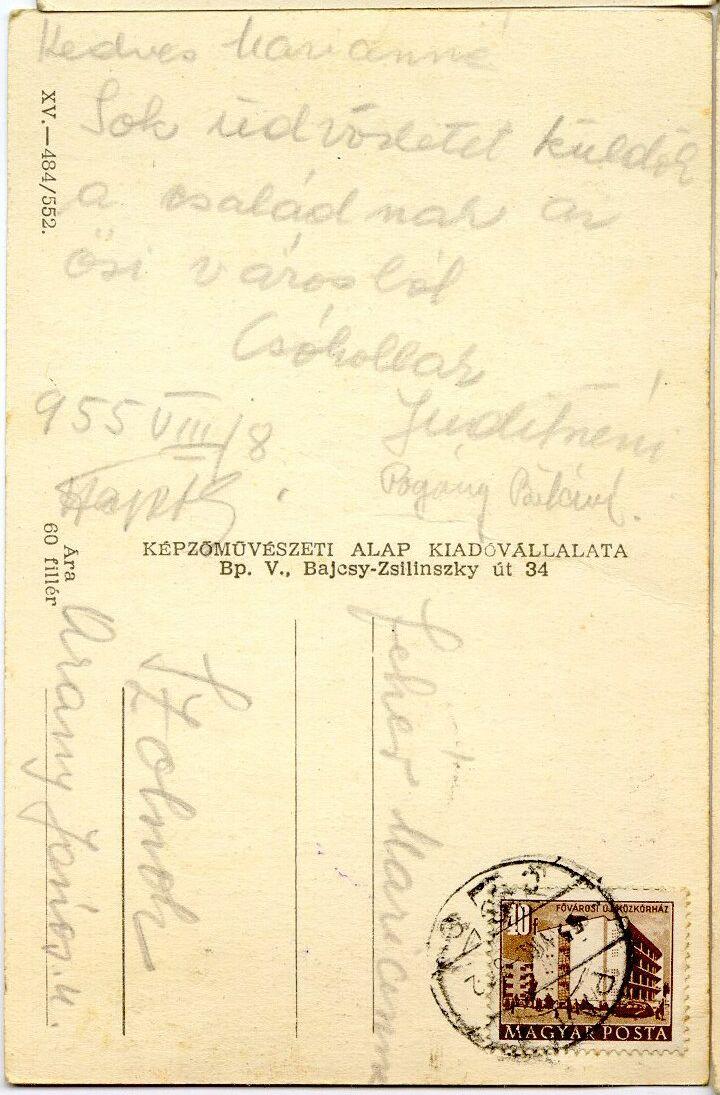 Kedves Marianne
Sok üdvözletet küldök
a családnak az
ősi városból
Csókollak
955 VIII/8
Juditnéni
Pogány
XV.—484/552.
Ára
60 fillér
KÉPZŐMŰVÉSZETI ALAP KIADÓVÁLLALATA
Bp. V., Bajcsy-Zsilinszky út 34
Fehér Marianne
Szolnok
Arany János u.
40f
FŐVÁROSI ÚJ KÖZKÓRHÁZ
MAGYAR POSTA